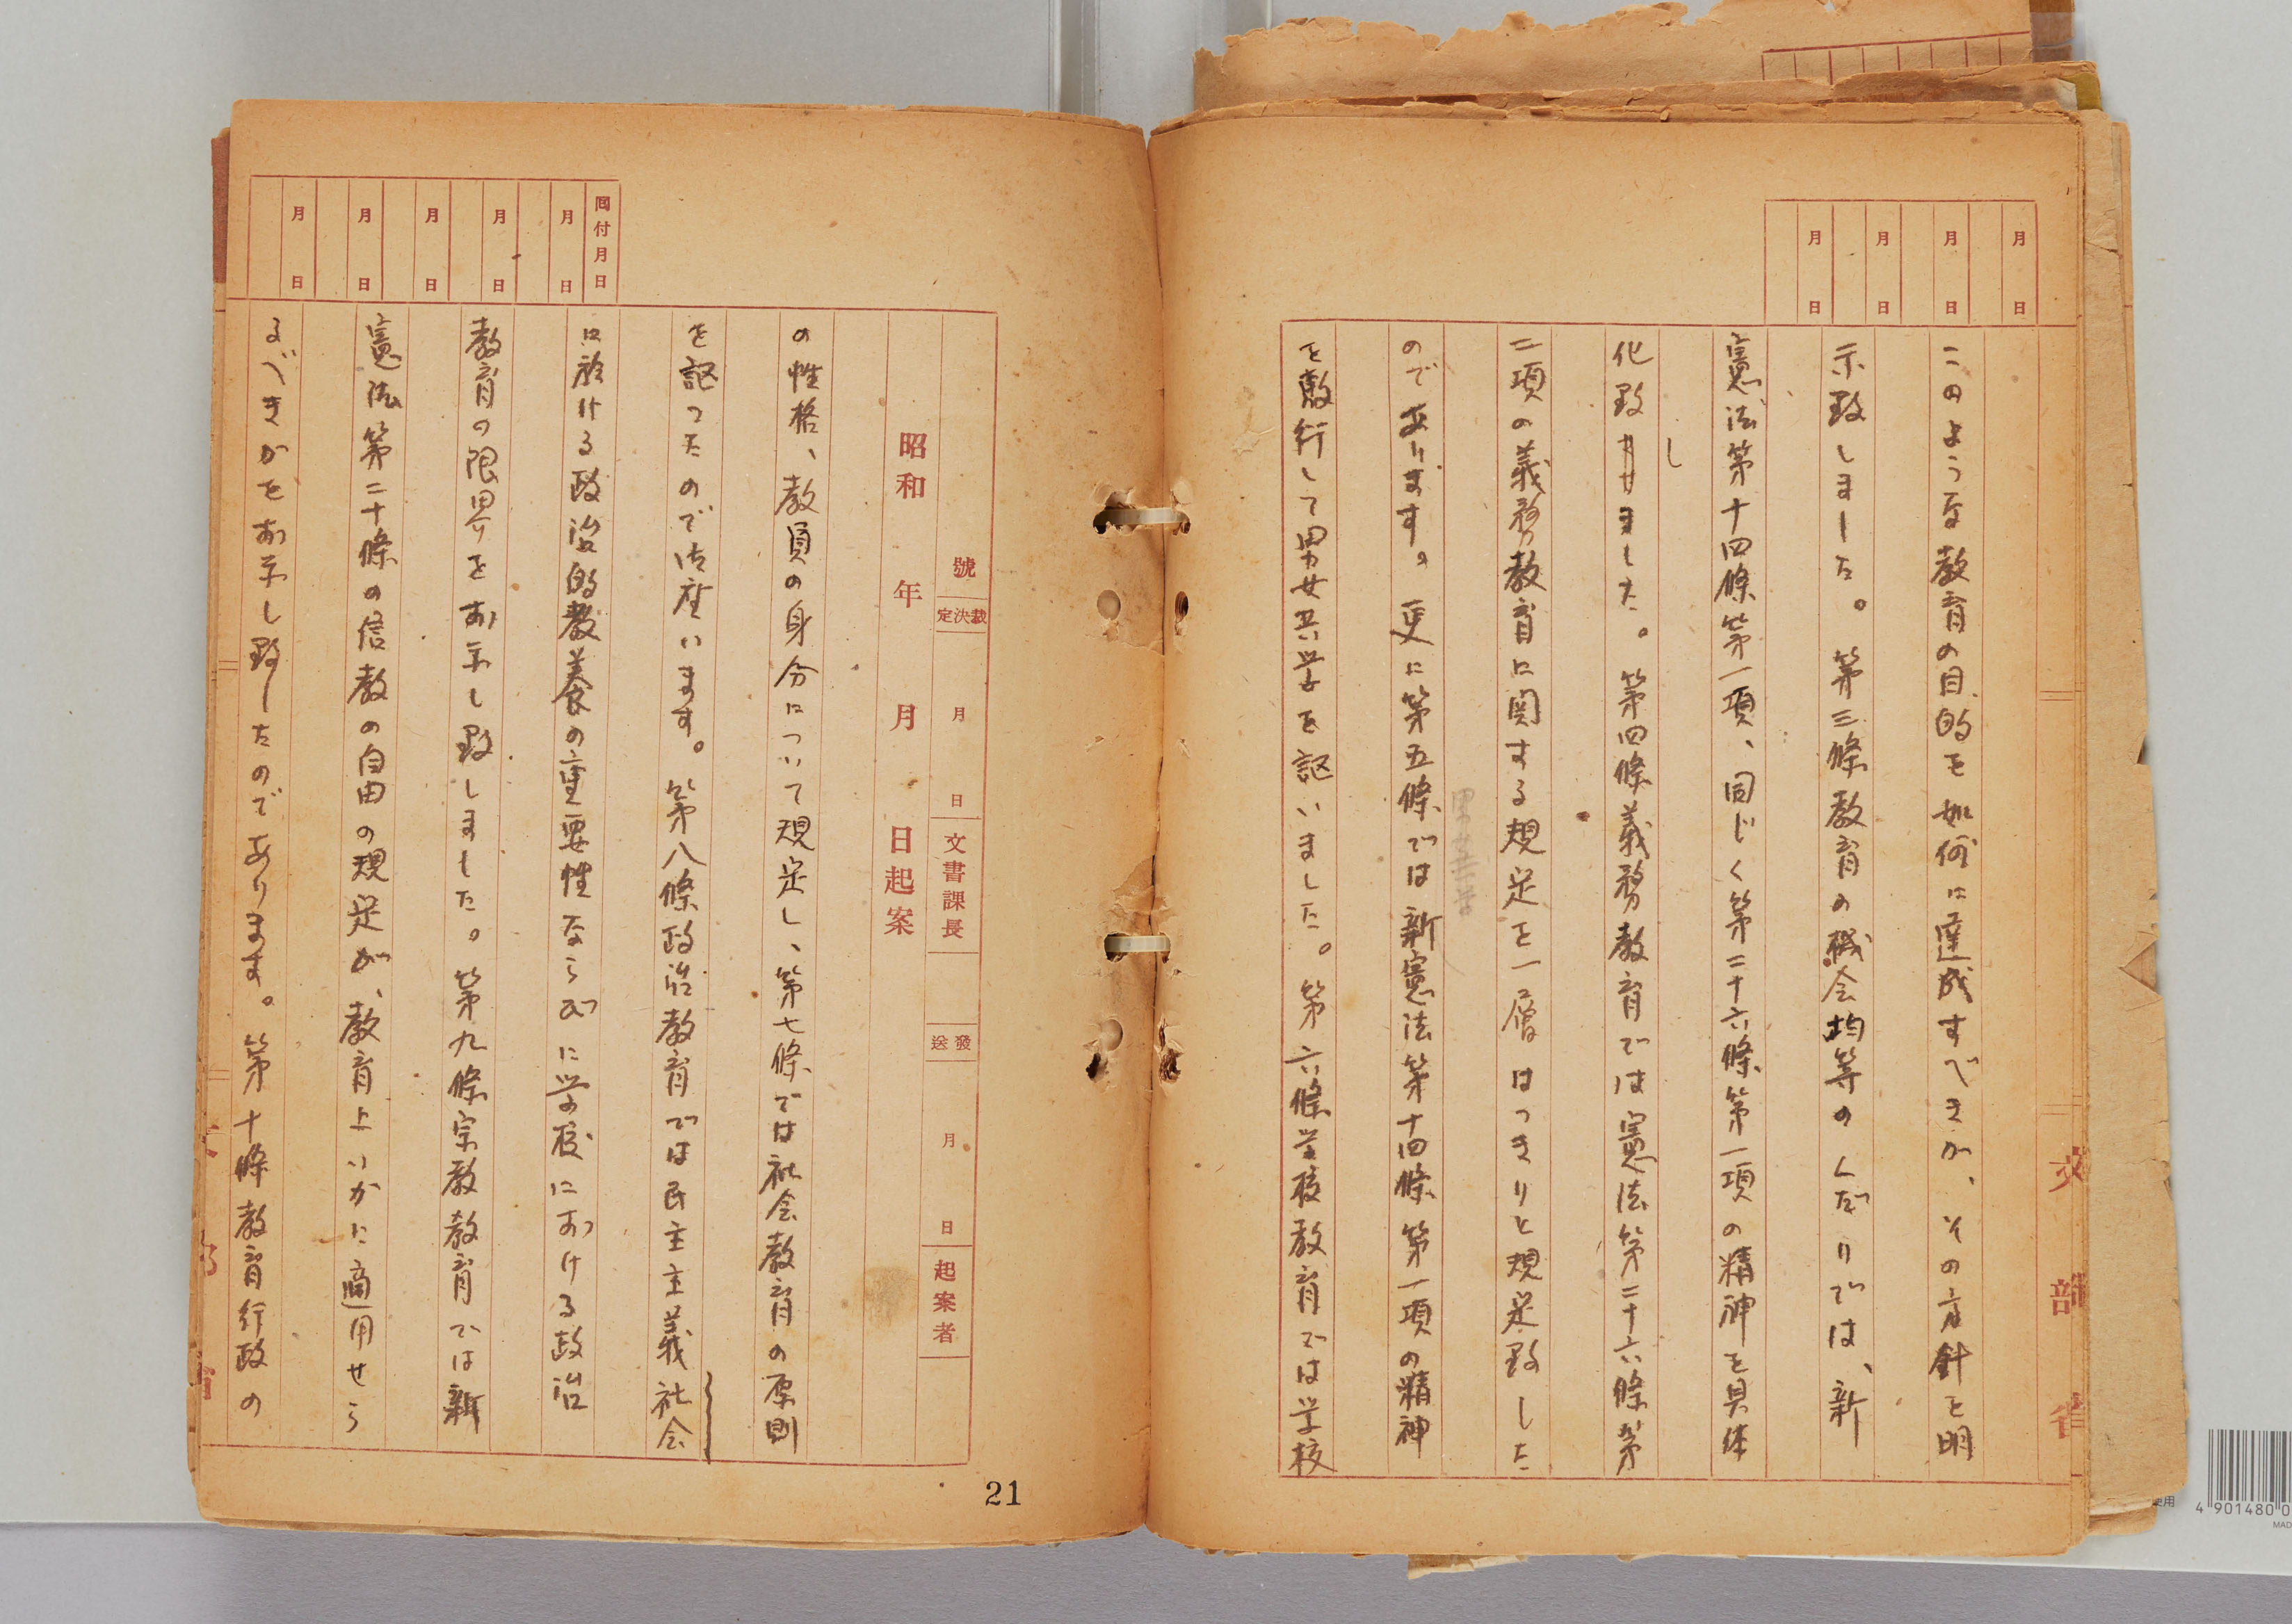 月 日
月 日
月 日
月 日
このような教育の目的を如何に達成すべきか、その方針を明
示致しました。第三條教育の機会均等のくだりでは、新
憲法第十四條第一項、同じく第二十六條第一項の精神を具体
化致しました。第四條義務教育では憲法第二十六條第
二項の義務教育に関する規定を一層はっきりと規定致した
男女共学
のであります。更に第五條では新憲法第十四條第一項の精神
を敷衍して男女共学を謳いました。第六條学校教育では学校
文部省
號
裁決定
月 日
文書課長
發送
月 日
起案者
昭和 年 月 日起案
回付月日
月 日
月 日
月 日
月 日
月 日
の性格、教員の身分について規定し、第七條では社会教育の原則
を謳つたので御座います。第八條政治教育では民主主義社会
に於ける政治的教養の重要性ならびに学校における政治
教育の限界をお示し致しました。第九條宗教教育では新
憲法第二十條の信教の自由の規定が、教育上いかに適用せら
るべきかをお示し致したのであります。第十條教育行政の
文部省
21
4 901480 0
MAD
使用